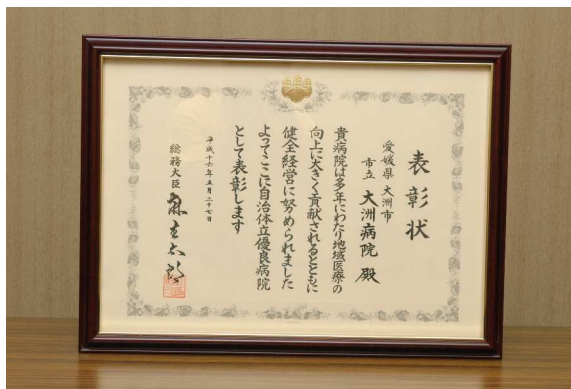 表彰状
愛媛県 大洲市
市立 大洲病院 殿
貴病院は多年にわたり地域医療の
向上に大きく貢献されるとともに
健全経営に努められました
よってここに自治体立優良病院
として表彰します
平成十六年五月二十七日
総務大臣 麻生太郎